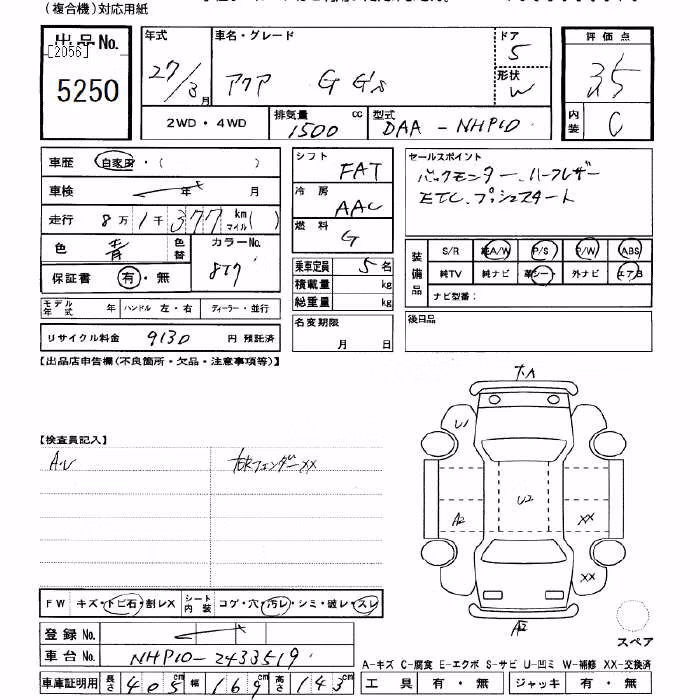 (複合機)対応用紙
出品No.
[2056]
5250
年式
27/3月
車名・グレード
アクア G G's
ドア
5
形状
W
評価点
3.5
内装
C
2WD・4WD
排気量
1500 cc
型式
DAA-NHP10
車歴 自家用・( )
車検 年 月
走行 8万1千377 km マイル( )
色 青 色替
カラーNo.
8T7
保証書 有・無
シフト
FAT
冷房
AAC
燃料
G
乗車定員 5名
積載量 kg
総重量 kg
セールスポイント
バックモニター、ハーフレザー
ETC、プッシュスタート
装備品
S/R 純A/W P/S P/W ABS
純TV 純ナビ 革シート 外ナビ エアB
ナビ型番:
モデル年式 年 ハンドル 左・右 ディーラー・並行
リサイクル料金 9130 円 預託済
名変期限
月 日
後日品
【出品店申告欄(不良箇所・欠品・注意事項等)】
【検査員記入】
A・U
フェンダーXX
A
U1
U2
A2
XX
XX
A2
スペア
FW キズ・トビ石・割レX シート内装 コゲ・穴・汚レ・シミ・破レ・スレ
登録No.
車台No. NHP10-2433519
車庫証明用 長さ 405cm 幅 169cm 高さ 143cm
A-キズ C-腐食 E-エクボ S-サビ U-凹ミ W-補修 XX-交換済
工具 有・無 ジャッキ 有・無